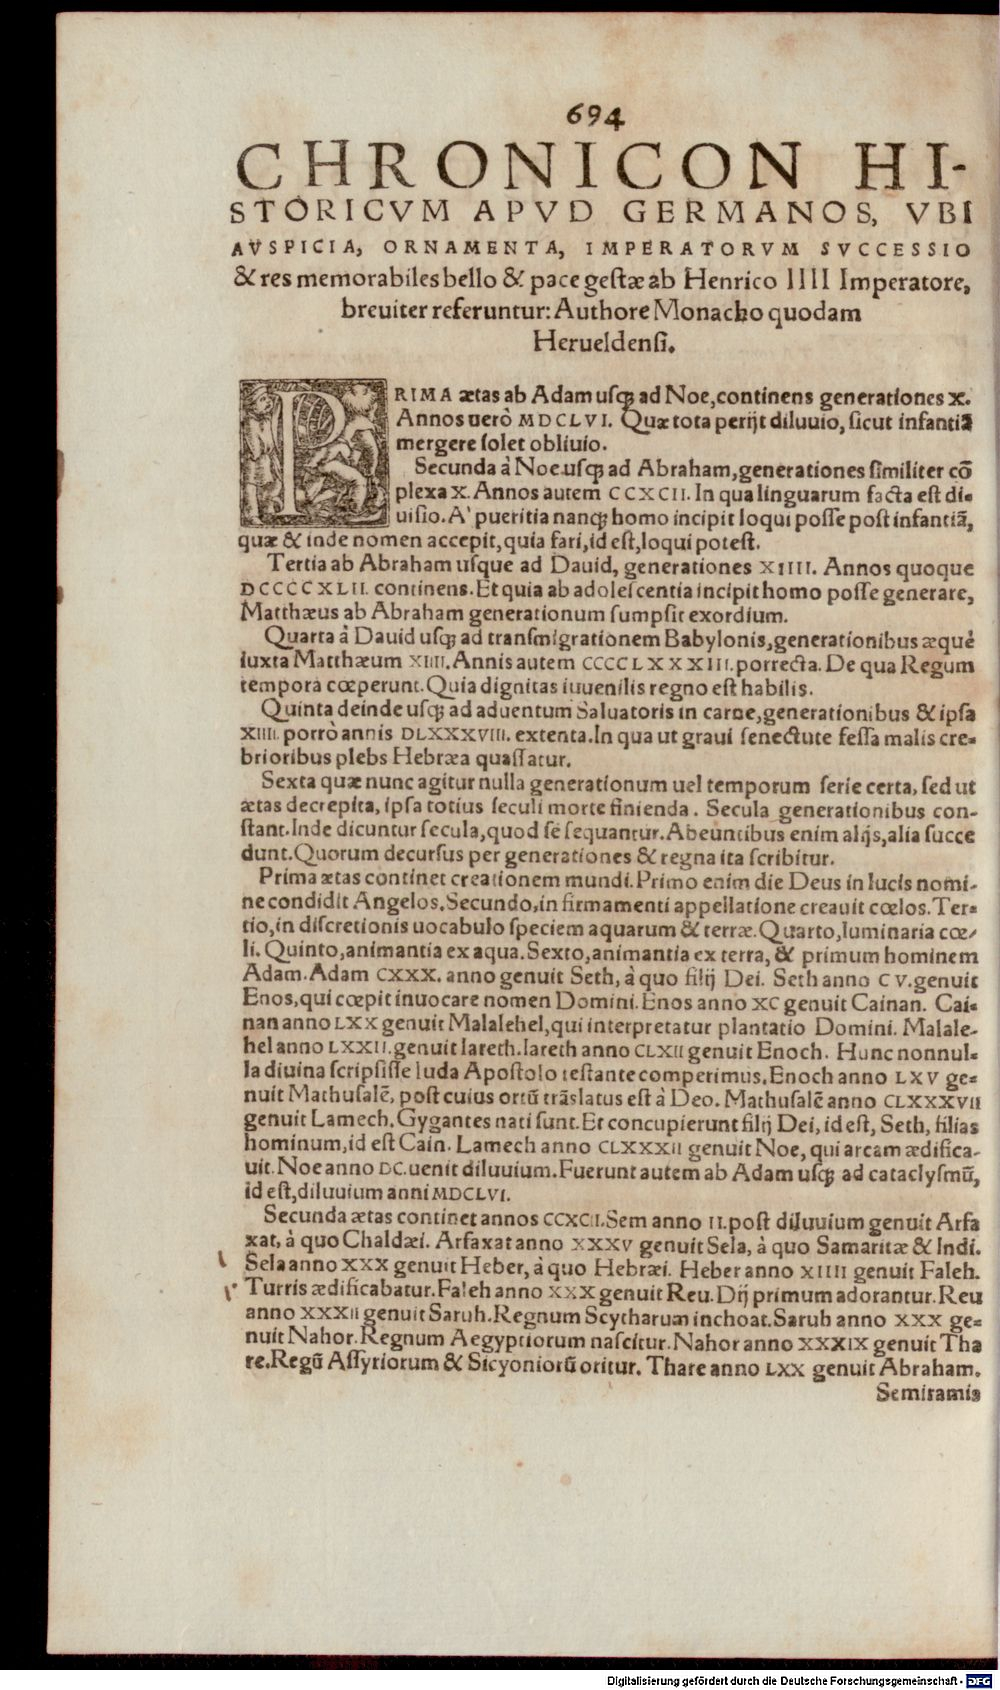 694
CHRONICON HI-
STORICVM APVD GERMANOS, VBI
AVSPICIA, ORNAMENTA, IMPERATORVM SVCCESSIO
& res memorabiles bello & pace gestæ ab Henrico IIII Imperatore,
breuiter referuntur: Authore Monacho quodam
Herueldensi.
PRIMA ætas ab Adam usq; ad Noe, continens generationes X.
Annos uerò MDCLVI. Quæ tota perijt diluuio, sicut infantiā
mergere solet obliuio.
Secunda à Noe usq; ad Abraham, generationes similiter cō
plexa X. Annos autem CCXCII. In qua linguarum facta est di-
uisio. A' pueritia nanq; homo incipit loqui posse post infantiā,
quæ & inde nomen accepit, quia fari, id est, loqui potest.
Tertia ab Abraham usque ad Dauid, generationes XIIII. Annos quoque
DCCCCXLII. continens. Et quia ab adolescentia incipit homo posse generare,
Matthæus ab Abraham generationum sumpsit exordium.
Quarta à Dauid usq; ad transmigrationem Babylonis, generationibus æquè
iuxta Matthæum XIIII. Annis autem CCCCLXXXIII. porrecta. De qua Regum
tempora cœperunt. Quia dignitas iuuenilis regno est habilis.
Quinta deinde usq; ad aduentum Saluatoris in carne, generationibus & ipsa
XIIII. porrò annis DLXXXVIII. extenta. In qua ut graui senectute fessa malis cre-
brioribus plebs Hebræa quassatur.
Sexta quæ nunc agitur nulla generationum uel temporum serie certa, sed ut
ætas decrepita, ipsa totius seculi morte finienda. Secula generationibus con-
stant. Inde dicuntur secula, quod se sequantur. Abeuntibus enim alijs, alia succe
dunt. Quorum decursus per generationes & regna ita scribitur.
Prima ætas continet creationem mundi. Primo enim die Deus in lucis nomi-
ne condidit Angelos. Secundo, in firmamenti appellatione creauit cœlos. Ter-
tio, in discretionis uocabulo speciem aquarum & terræ. Quarto, luminaria cœ-
li. Quinto, animantia ex aqua. Sexto, animantia ex terra, & primum hominem
Adam. Adam CXXX. anno genuit Seth, à quo filij Dei. Seth anno CV. genuit
Enos, qui cœpit inuocare nomen Domini. Enos anno XC genuit Cainan. Cai-
nan anno LXX genuit Malalehel, qui interpretatur plantatio Domini. Malale-
hel anno LXXII. genuit Iareth. Iareth anno CLXII genuit Enoch. Hunc nonnul-
la diuina scripsisse Iuda Apostolo testante comperimus. Enoch anno LXV ge-
nuit Mathusalē, post cuius ortū trāslatus est à Deo. Mathusalē anno CLXXXVII
genuit Lamech. Gygantes nati sunt. Et concupierunt filij Dei, id est, Seth, filias
hominum, id est Cain. Lamech anno CLXXXII genuit Noe, qui arcam ædifica-
uit. Noe anno DC. uenit diluuium. Fuerunt autem ab Adam usq; ad cataclysmū,
id est, diluuium anni MDCLVI.
Secunda ætas continet annos CCXCII. Sem anno II. post diluuium genuit Arfa
xat, à quo Chaldæi. Arfaxat anno XXXV genuit Sela, à quo Samaritæ & Indi.
Sela anno XXX genuit Heber, à quo Hebræi. Heber anno XIIII genuit Faleh.
Turris ædificabatur. Faleh anno XXX genuit Reu. Dij primum adorantur. Reu
anno XXXII genuit Saruh. Regnum Scytharum inchoat. Saruh anno XXX ge-
nuit Nahor. Regnum Aegyptiorum nascitur. Nahor anno XXXIX genuit Tha
re. Regū Assyriorum & Sicyoniorū oritur. Thare anno LXX genuit Abraham.
Semiramis
Digitalisierung gefördert durch die Deutsche Forschungsgemeinschaft - DFG